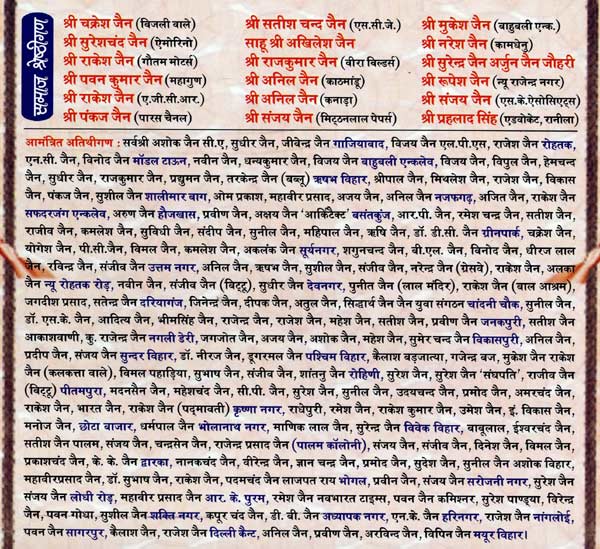 समाज श्रेष्ठीगण
श्री चक्रेश जैन (बिजली वाले)
श्री सुरेशचंद जैन (ऐमोरिनो)
श्री राकेश जैन (गौतम मोटर्स)
श्री पवन कुमार जैन (महागुण)
श्री राकेश जैन (ए.जी.सी.आर.)
श्री पंकज जैन (पारस चैनल)
श्री सतीश चन्द जैन (एस.सी.जे.)
साहू श्री अखिलेश जैन
श्री राजकुमार जैन (वीरा बिल्डर्स)
श्री अनिल जैन (काठमांडू)
श्री अनिल जैन (कनाड़ा)
श्री संजय जैन (मिट्ठनलाल पेपर्स)
श्री मुकेश जैन (बाहुबली एन्क.)
श्री नरेश जैन (कामधेनु)
श्री सुरेन्द्र जैन अर्जुन जैन जौहरी
श्री रूपेश जैन (न्यू राजेन्द्र नगर)
श्री संजय जैन (एस.के.ऐसोसिएट्स)
श्री प्रहलाद सिंह (एडवोकेट, रानीला)
आमंत्रित अतिथीगण : सर्वश्री अशोक जैन सी.ए, सुधीर जैन, जीवेन्द्र जैन गाजियाबाद, विजय जैन एल.पी.एस, राजेश जैन रोहतक,
एन.सी. जैन, विनोद जैन मॉडल टाऊन, नवीन जैन, धन्यकुमार जैन, विजय जैन बाहुबली एन्कलेव, विजय जैन, विपुल जैन, हेमचन्द
जैन, सुधीर जैन, राजकुमार जैन, प्रद्युमन जैन, तरकेन्द्र जैन (बब्लू) ऋषभ विहार, श्रीपाल जैन, मिथलेश जैन, राजेश जैन, विकास
जैन, पंकज जैन, सुशील जैन शालीमार बाग, ओम प्रकाश, महावीर प्रसाद, अजय जैन, अनिल जैन नजफगढ़, अजित जैन, राकेश जैन
सफदरजंग एन्कलेव, अरुण जैन हौजखास, प्रवीण जैन, अक्षय जैन 'आर्किटेक्ट' बसंतकुंज, आर.पी. जैन, रमेश चन्द्र जैन, सतीश जैन,
राजीव जैन, कमलेश जैन, सुविधी जैन, संदीप जैन, सुनील जैन, महिपाल जैन, ऋषि जैन, डॉ. डी.सी. जैन ग्रीनपार्क, चक्रेश जैन,
योगेश जैन, पी.सी.जैन, विमल जैन, कमलेश जैन, अकलंक जैन सूर्यनगर, शगुनचन्द जैन, बी.एल. जैन, विनोद जैन, धीरज लाल
जैन, रविन्द्र जैन, संजीव जैन उत्तम नगर, अनिल जैन, ऋषभ जैन, सुशील जैन, संजीव जैन, नरेन्द्र जैन (ग्रेसवे), राकेश जैन, अलका
जैन न्यू रोहतक रोड़, नवीन जैन, संजीव जैन (बिट्टू), सुधीर जैन देवनगर, पुनीत जैन (लाल मंदिर), राकेश जैन (बाल आश्रम),
जगदीश प्रसाद, सतेन्द्र जैन दरियागंज, जिनेन्द्र जैन, दीपक जैन, अतुल जैन, सिद्धार्थ जैन जैन युवा संगठन चांदनी चौक, सुनील जैन,
डॉ. एस.के. जैन, आदित्य जैन, भीमसिंह जैन, राजेन्द्र जैन, राजेश जैन, महेश जैन, सतीश जैन, प्रवीण जैन जनकपुरी, सतीश जैन
आकाशवाणी, कु. राजेन्द्र जैन नगली डेरी, जगजोत जैन, अजय जैन, अशोक जैन, महेश जैन, सुमेर चन्द जैन विकासपुरी, अनिल जैन,
प्रदीप जैन, संजय जैन सुन्दर विहार, डॉ. नीरज जैन, डूगरमल जैन पश्चिम विहार, कैलाश बड़जात्या, गजेन्द्र बज, मुकेश जैन राकेश
जैन (कलकत्ता वाले), विमल पहाड़िया, सुभाष जैन, संजीव जैन, शांतनु जैन रोहिणी, सुरेश जैन, सुरेश जैन 'संघपति', राजीव जैन
(बिट्टू) पीतमपुरा, मदनसैन जैन, महेशचंद जैन, सी.पी. जैन, सुरेश जैन, सुनील जैन, उदयचन्द जैन, प्रमोद जैन, अमरचंद जैन,
राकेश जैन, भारत जैन, राकेश जैन (पद्मावती) कृष्णा नगर, राधेपुरी, रमेश जैन, राकेश कुमार जैन, उमेश जैन, इं. विकास जैन,
मनोज जैन, छोटा बाजार, धर्मपाल जैन भोलानाथ नगर, माणिक लाल जैन, सुरेन्द्र जैन विवेक विहार, बाबूलाल, ईश्वरचंद जैन,
सतीश जैन पालम, संजय जैन, चन्द्रसेन जैन, राजेन्द्र प्रसाद जैन (पालम कॉलोनी), संजय जैन, संजीव जैन, दिनेश जैन, विमल जैन,
प्रकाशचंद जैन, के. के. जैन द्वारका, नानकचंद जैन, वीरेन्द्र जैन, ज्ञान चन्द्र जैन, प्रमोद जैन, सुदेश जैन, सुनील जैन अशोक विहार,
महावीरप्रसाद जैन, डॉ. सुभाष जैन, राकेश जैन, पदमचंद जैन लाजपत राय भोगल, प्रवीन जैन, संजय जैन सरोजनी नगर, सुरेश जैन
संजय जैन लोधी रोड़, महावीर प्रसाद जैन आर. के. पुरम, रमेश जैन नवभारत टाइम्स, पवन जैन कमिश्नर, सुरेश पाण्डूया, विरेन्द्र
जैन, पवन गोधा, सुशील जैन शक्ति नगर, कपूर चंद जैन, डी. बी. जैन अध्यापक नगर, एन.के. जैन हरिनगर, राजेश जैन नांगलोई,
पवन जैन सागरपुर, कैलाश जैन, राजेश जैन दिल्ली कैन्ट, अनिल जैन, प्रवीण जैन, अरविन्द जैन, विपिन जैन मयूर विहार।